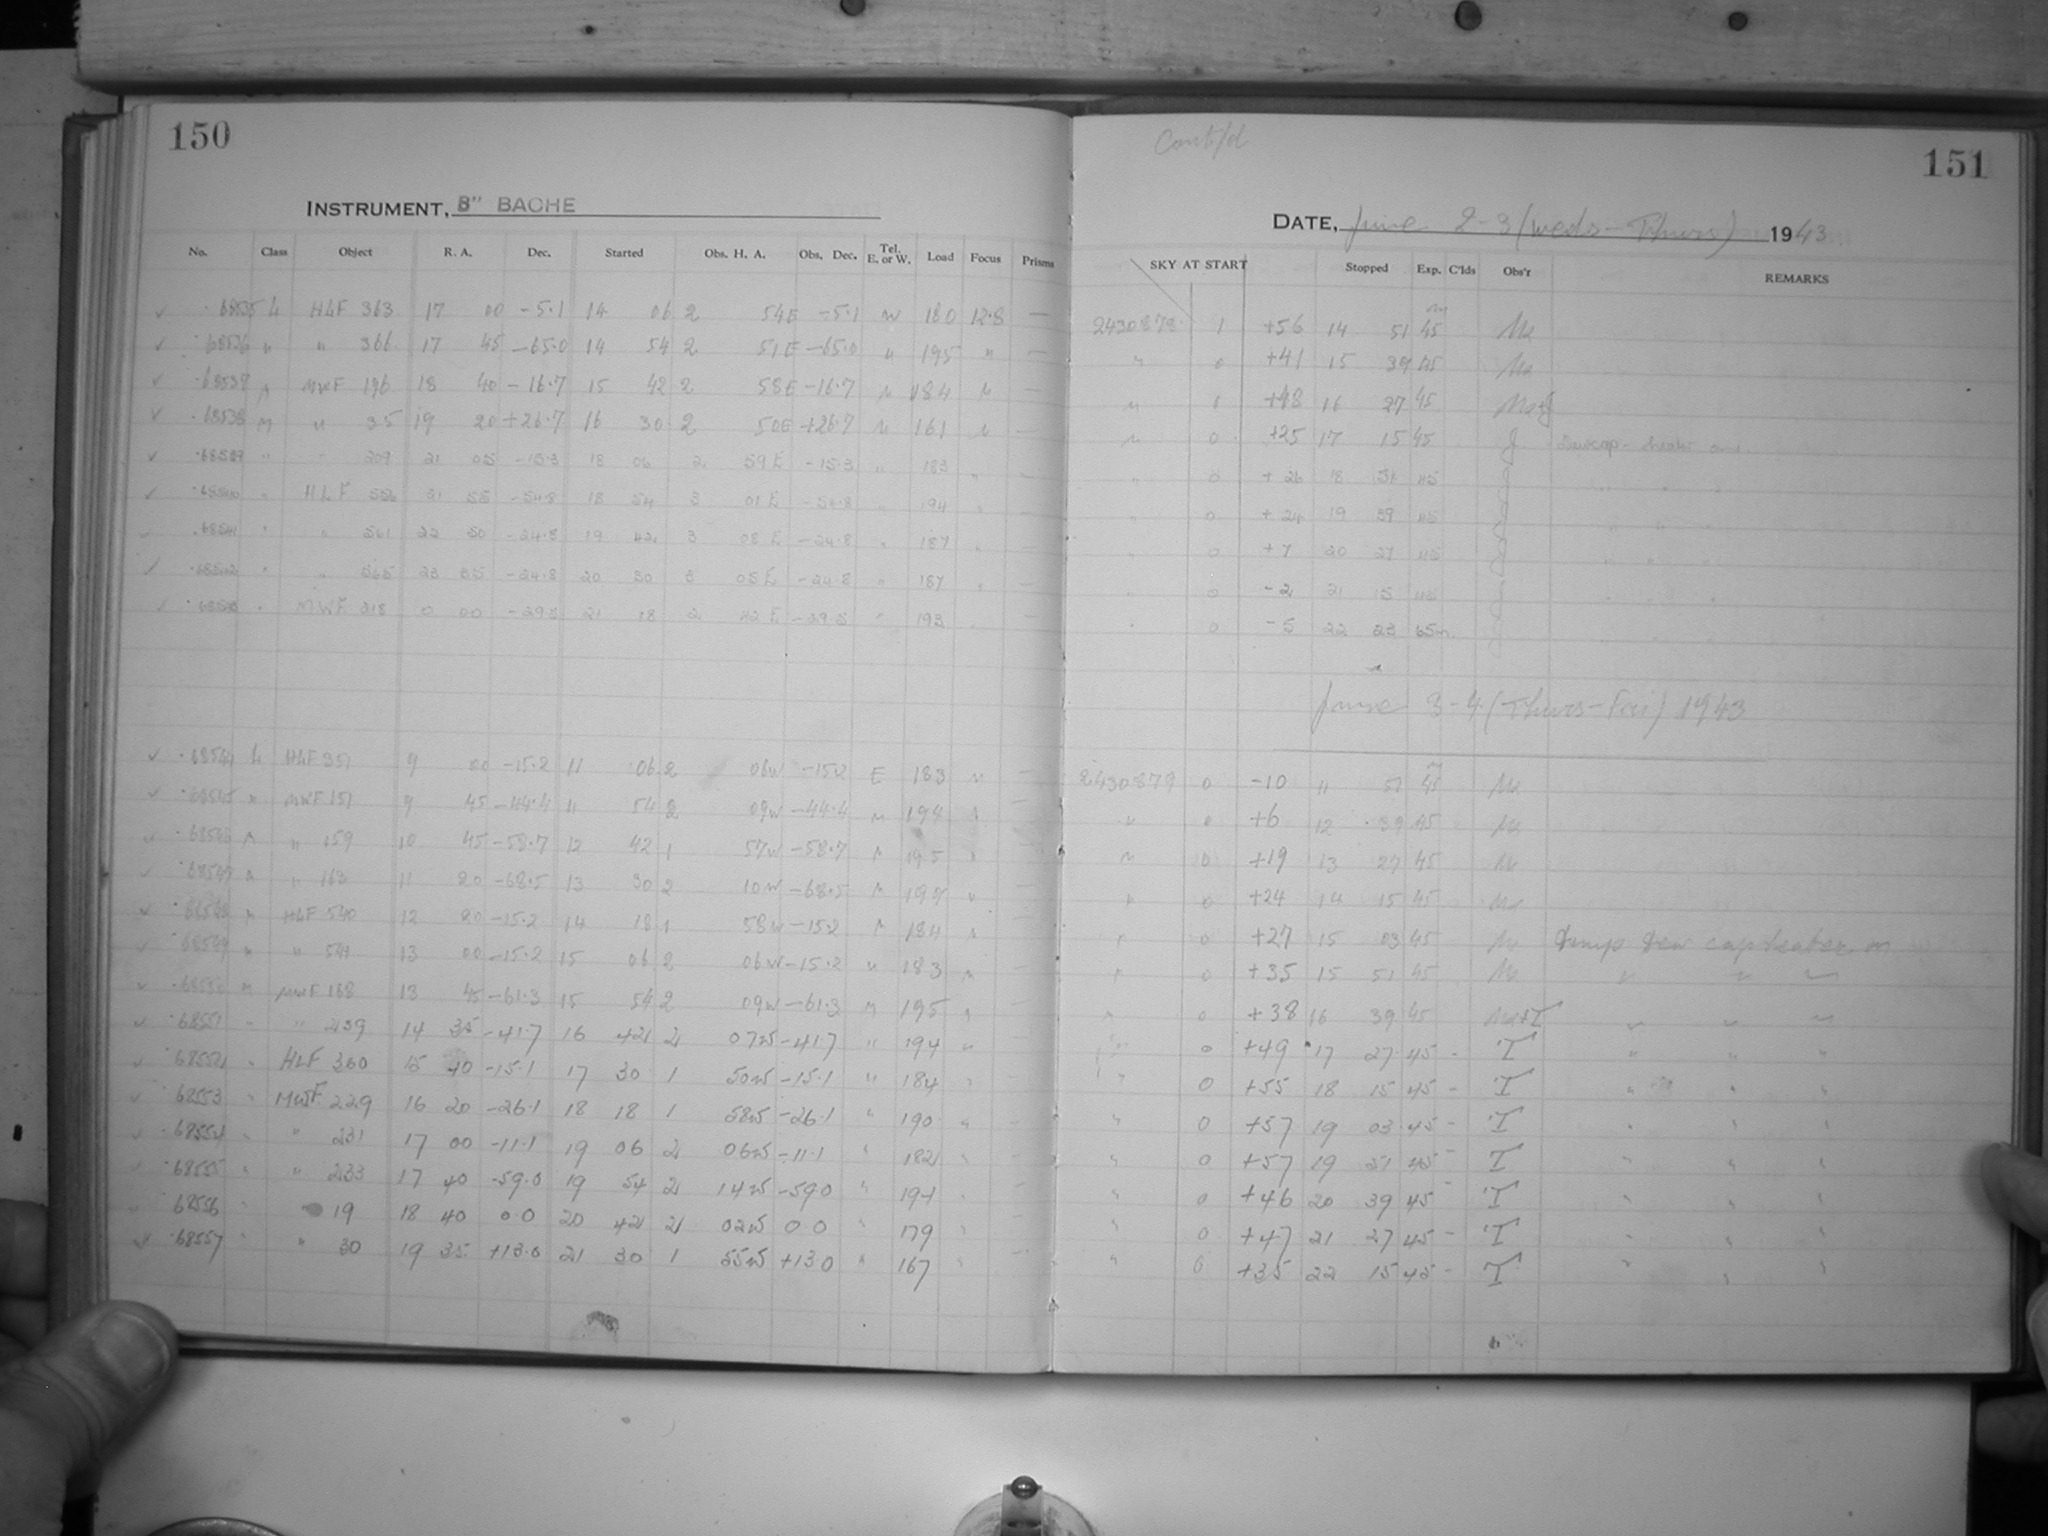 150
INSTRUMENT, 8" BACHE
No. Class Object R. A. Dec. Started Obs. H. A. Obs. Dec. Tel. E. or W. Load Focus Prisms
68535 HLF 363 17 00 -5.1 14 06 2 54E -5.1 W 180 12.8 —
68536 " " 366 17 45 -65.0 14 54 2 51E -65.0 " 195 " —
MWF 196 18 40 -16.7 15 42 2 58E -16.7 " 184 " —
68538 " " 35 19 20 +26.7 16 30 2 50E +26.7 " 161 "
68539 " " 209 21 05 -15.3 18 06 2 59E -15.3 " 183 " —
68540 " HLF 21 55 -54.8 18 54 3 01E -54.8 " 194 " —
68541 " " 561 22 50 -24.8 19 42 3 08E -24.8 " 187 " —
68542 " " 565 23 35 -24.8 20 30 3 05E -24.8 " 187 " —
" MWF 218 0 00 21 18 2 42E " 193 —
68544 HLF 351 9 00 -15.2 11 06 2 06W -15.2 E 183 " —
68545 " MWF 151 9 45 -44.4 11 54 2 09W -44.4 " 194 " —
68546 " " 159 10 45 -58.7 12 42 1 57W -58.7 " 195 " —
68547 " " 163 11 20 -68.5 13 30 2 10W -68.5 " "
68548 " HLF 540 12 20 -15.2 14 18 1 58W -15.2 " 184 "
68549 " " 541 13 00 -15.2 15 06 2 06W -15.2 " 183 " —
68550 " MWF 168 13 45 -61.3 15 54 2 09W -61.3 " 195 " —
68551 " " 239 14 35 -41.7 16 42 2 07W -41.7 " 194 " —
68552 " HLF 360 15 40 -15.1 17 30 1 50W -15.1 " 184 " —
68553 " MWF 229 16 20 -26.1 18 18 1 58W -26.1 " 190 " —
68554 " " 231 17 00 -11.1 19 06 2 06W -11.1 " 182 " —
68555 " " 233 17 40 -59.0 19 54 2 14W -59.0 " 194 " —
68556 " " 19 18 40 0.0 20 42 2 02W 0.0 " 179 " —
68557 " " 30 19 35 +13.0 21 30 1 55W +13.0 " 167 " —
Cont/d
151
DATE, June 2-3 (Weds-Thurs) 1943
SKY AT START Stopped Exp. C'lds Obs'r REMARKS
2430878 1 +56 14 51 45m
" 0 +41 15 39 45
" 1 +48 16 27 45
" 0 +25 17 15 45 J Dewcap-heater on
" 0 +26 18 51 45 J " " "
" 0 +24 19 39 45 J " " "
" 0 +7 20 27 45 J " " "
" 0 -2 21 15 45 J " " "
" 0 -5 22 23 65m J " " "
June 3-4 (Thurs-Fri) 1943
2430879 0 -10 11 51 45m
" 0 +6 12 39 45
" 0 +19 13 27 45
" 0 +24 14 15 45
" 0 +27 15 03 45 dew cap heater on
" 0 +35 15 51 45 " " "
" 0 +38 16 39 45 " " "
" 0 +49 17 27 45 - T " " "
" 0 +55 18 15 45 - T " " "
" 0 +57 19 03 45 - T " " "
" 0 +57 19 51 45 - T " " "
" 0 +46 20 39 45 - T " " "
" 0 +47 21 27 45 - T " " "
" 0 +35 22 15 45 - T " " "